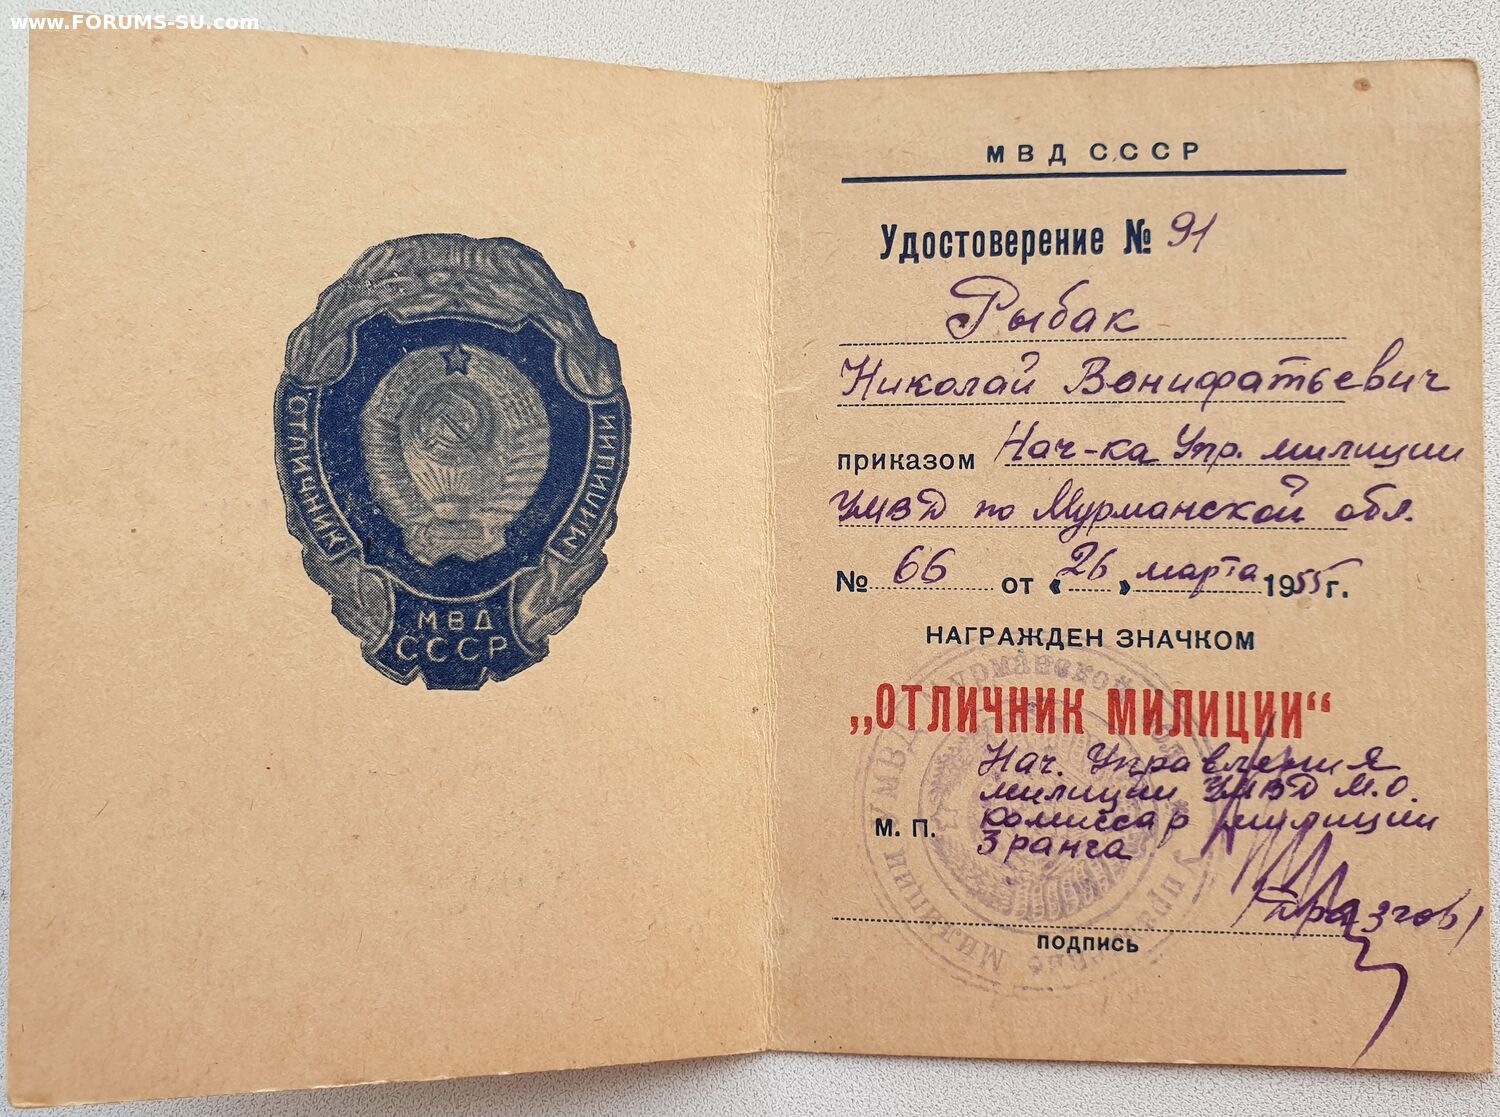 www.FORUMS-SU.com
ОТЛИЧНИК
МИЛИЦИИ
МВД
СССР
МВД СССР
Удостоверение № 91
Рыбак
Николай Вонифатьевич
приказом Нач-ка Упр. милиции
УМВД по Мурманской обл.
№ 66 от «26» марта 1955 г.
НАГРАЖДЕН ЗНАЧКОМ
„ОТЛИЧНИК МИЛИЦИИ“
Нач. Управления
милиции УМВД М.О.
М. П. комиссар милиции
3 ранга
подпись